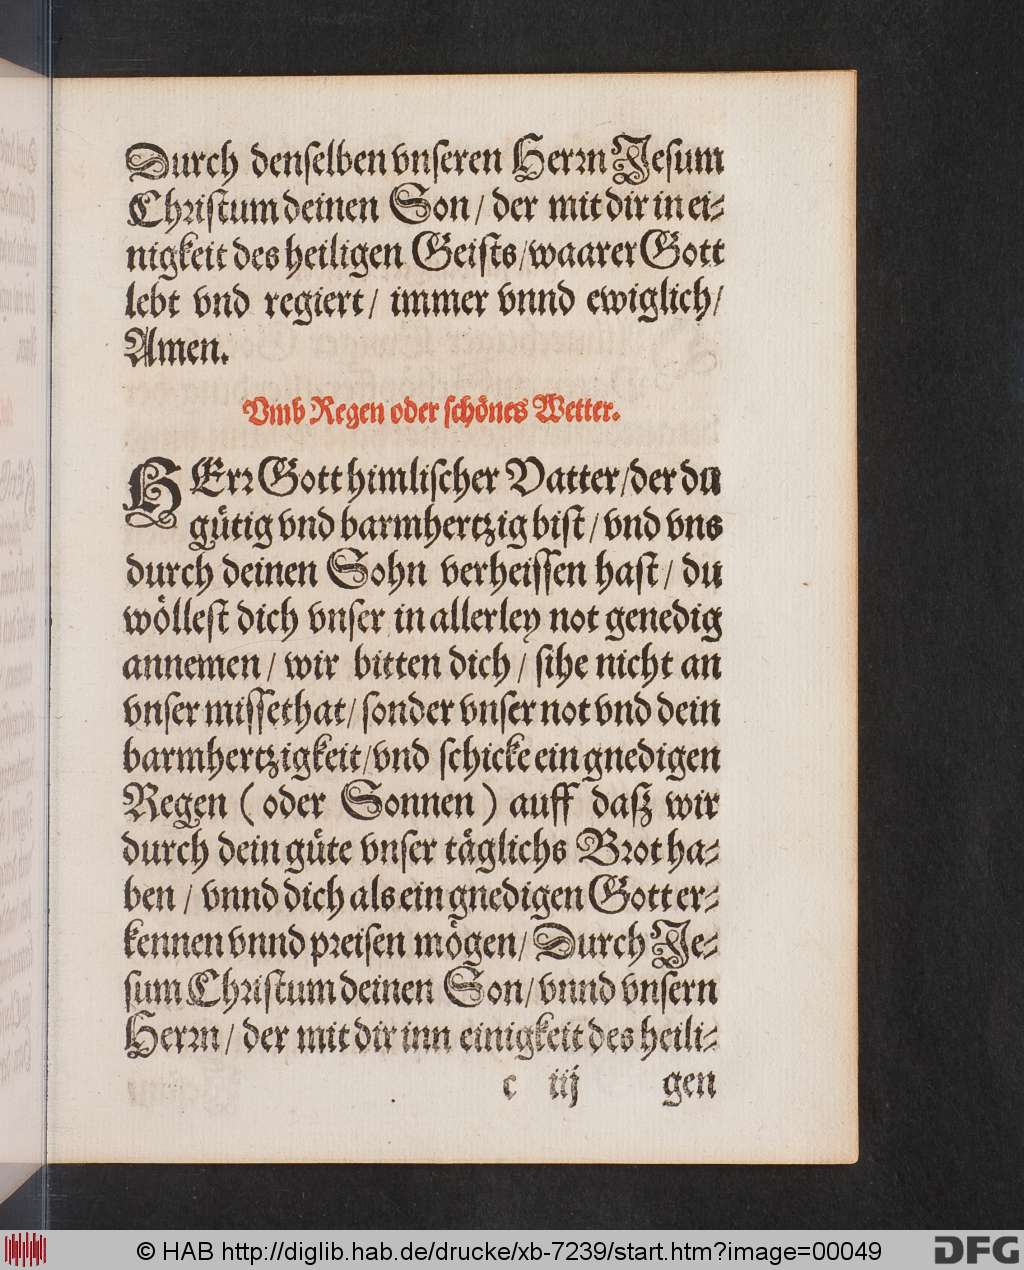 Durch denselben vnseren Herrn Jesum
Christum deinen Son / der mit dir in ei-
nigkeit des heiligen Geists / waarer Gott
lebt vnd regiert / immer vnnd ewiglich /
Amen.
Vmb Regen oder schönes Wetter.
HErr Gott himlischer Vatter / der du
gütig vnd barmhertzig bist / vnd vns
durch deinen Sohn verheissen hast / du
wöllest dich vnser in allerley not genedig
annemen / wir bitten dich / sihe nicht an
vnser missethat / sonder vnser not vnd dein
barmhertzigkeit / vnd schicke ein gnedigen
Regen ( oder Sonnen ) auff daß wir
durch dein güte vnser täglichs Brot ha-
ben / vnnd dich als ein gnedigen Gott er-
kennen vnnd preisen mögen / Durch Je-
sum Christum deinen Son / vnnd vnsern
Herrn / der mit dir inn einigkeit des heili-
c iij gen
© HAB http://diglib.hab.de/drucke/xb-7239/start.htm?image=00049
DFG